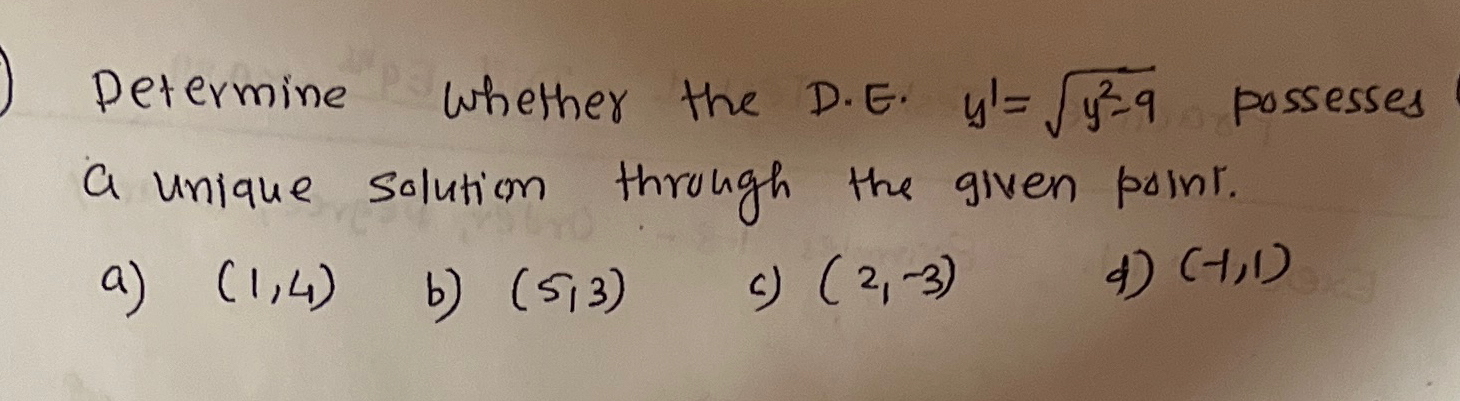 ) Determine whether the D.E. y' = √y²-9 possesses
a unique solution through the given point.
a) (1,4) b) (5,3) c) (2,-3) d) (-1,1)